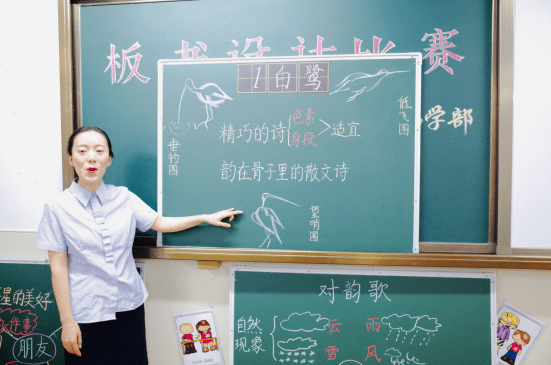 板书设计比赛
学部
1 白鹭
垂钓图
低飞图
精巧的诗 色素 身段 适宜
韵在骨子里的散文诗
望哨图
星的美好
朋友
对韵歌
自然现象
云 雨
雪 风